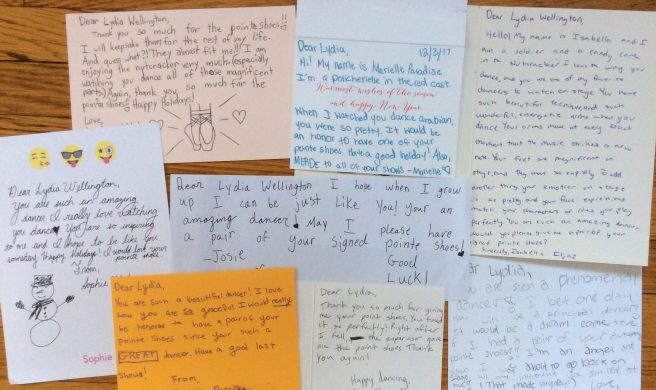 Dear Lydia Wellington,
Thank you so much for the pointe shoes!!
I will keepsake them for the rest of my life.
And guess what?! They almost fit me!!! I am
enjoying the nutcracker very much (especially
watching you dance all of those magnificent
parts) Again, thank you so much for the
pointe shoes! Happy Holidays!
Love,
Dear Lydia, 12/3/17
Hi! My name is Marielle Paradise.
I'm a polichenele in the red cast.
Warmest wishes of the season
and happy New Year
When I watched you dance Arabian,
you were so pretty. It would be
an honor to have one of your
pointe shoes. Have a good holiday! Also,
MERDE to all of your shows - Marielle
Dear Lydia Wellington,
Hello! My name is Isabella and I
am a soldier and a candy cane
in the Nutcracker. I love to see you
dance, and you are one of my favorite
dancers to watch on stage. You have
such beautiful technique and such
wonderful, energetic arms when you
dance. Your arms move at every exact
moment that the music strikes a new
note. Your feet are magnificent on
stage, and they move so rapidly. To add
another thing your emotion on stage
is so pretty and your face expressions
match your characters or roles you play
perfectly. You are such an amazing dancer.
Would you please give me a pair of your
signed pointe shoes?
Sincerely, Isabella
Dear Lydia Wellington,
You are such an amazing
dancer. I really love watching
you dance. You are so inspiring
to me and I hope to be like you
someday. Happy Holidays! I would love your
pointe shoes.
From,
Sophie
Sophie
Dear Lydia Wellington I hope when I grow
up I can be just like You! Your an
amazing dancer! May I please have
a pair of your signed pointe shoes!
-Josie Good
Luck!
Dear Lydia,
You are such a beautiful dancer! I love
how you are so graceful. I would really
be honored to have a pair of your
pointe shoes since your such a
GREAT dancer. Have a good last
shows!
From,
Dear Lydia,
Thank you so much for giving
me your point shoes. You timed
it so perfectly! Right after
I fell, the supervisor gave
me the point shoes. Thank
you again!
Happy dancing,
Dear Lydia,
You are such a phenomenal
dancer & I bet one day
you will be a principal dancer!
It would be a dream come true
if I had a pair of your
pointe shoes! I'm an angel
and about to go back on